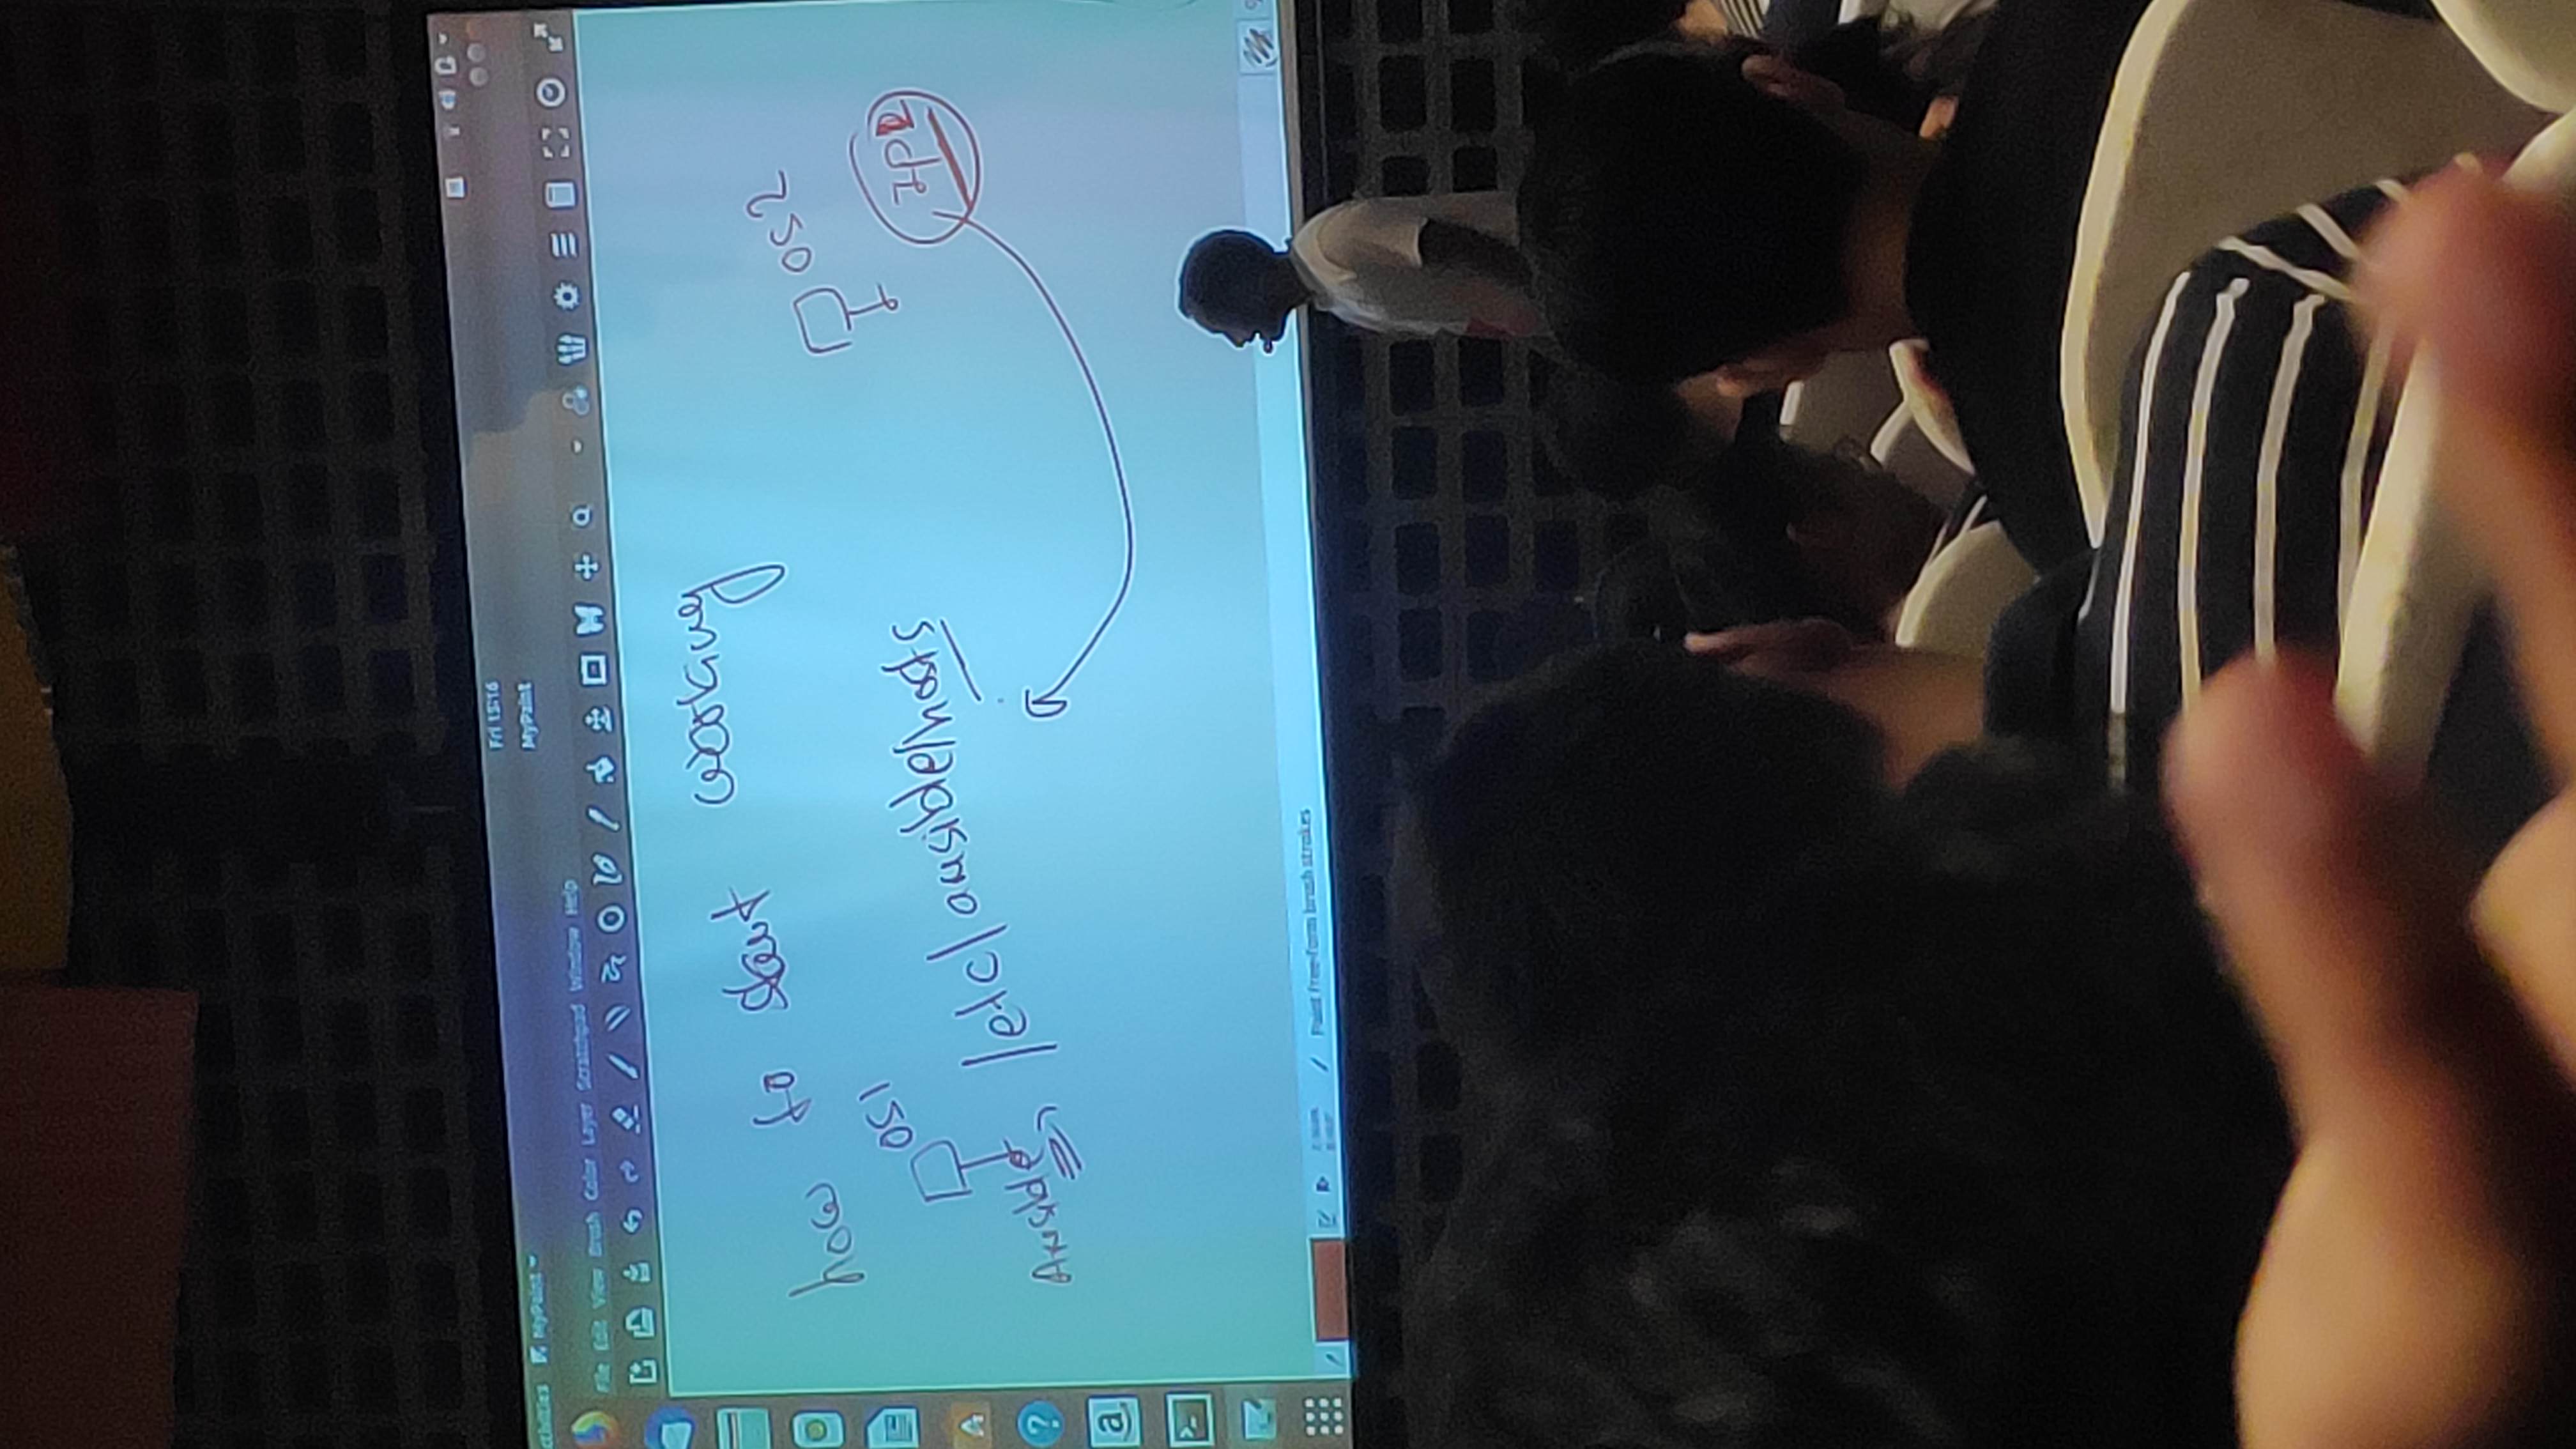 Fri 15:16
MyPaint
MyPaint
File Edit View Brush Color Layer Scratchpad Window Help
how to start working
OS1
OS2
Ansible, /etc/ansible/hosts
IP
a
Paint free-form brush strokes